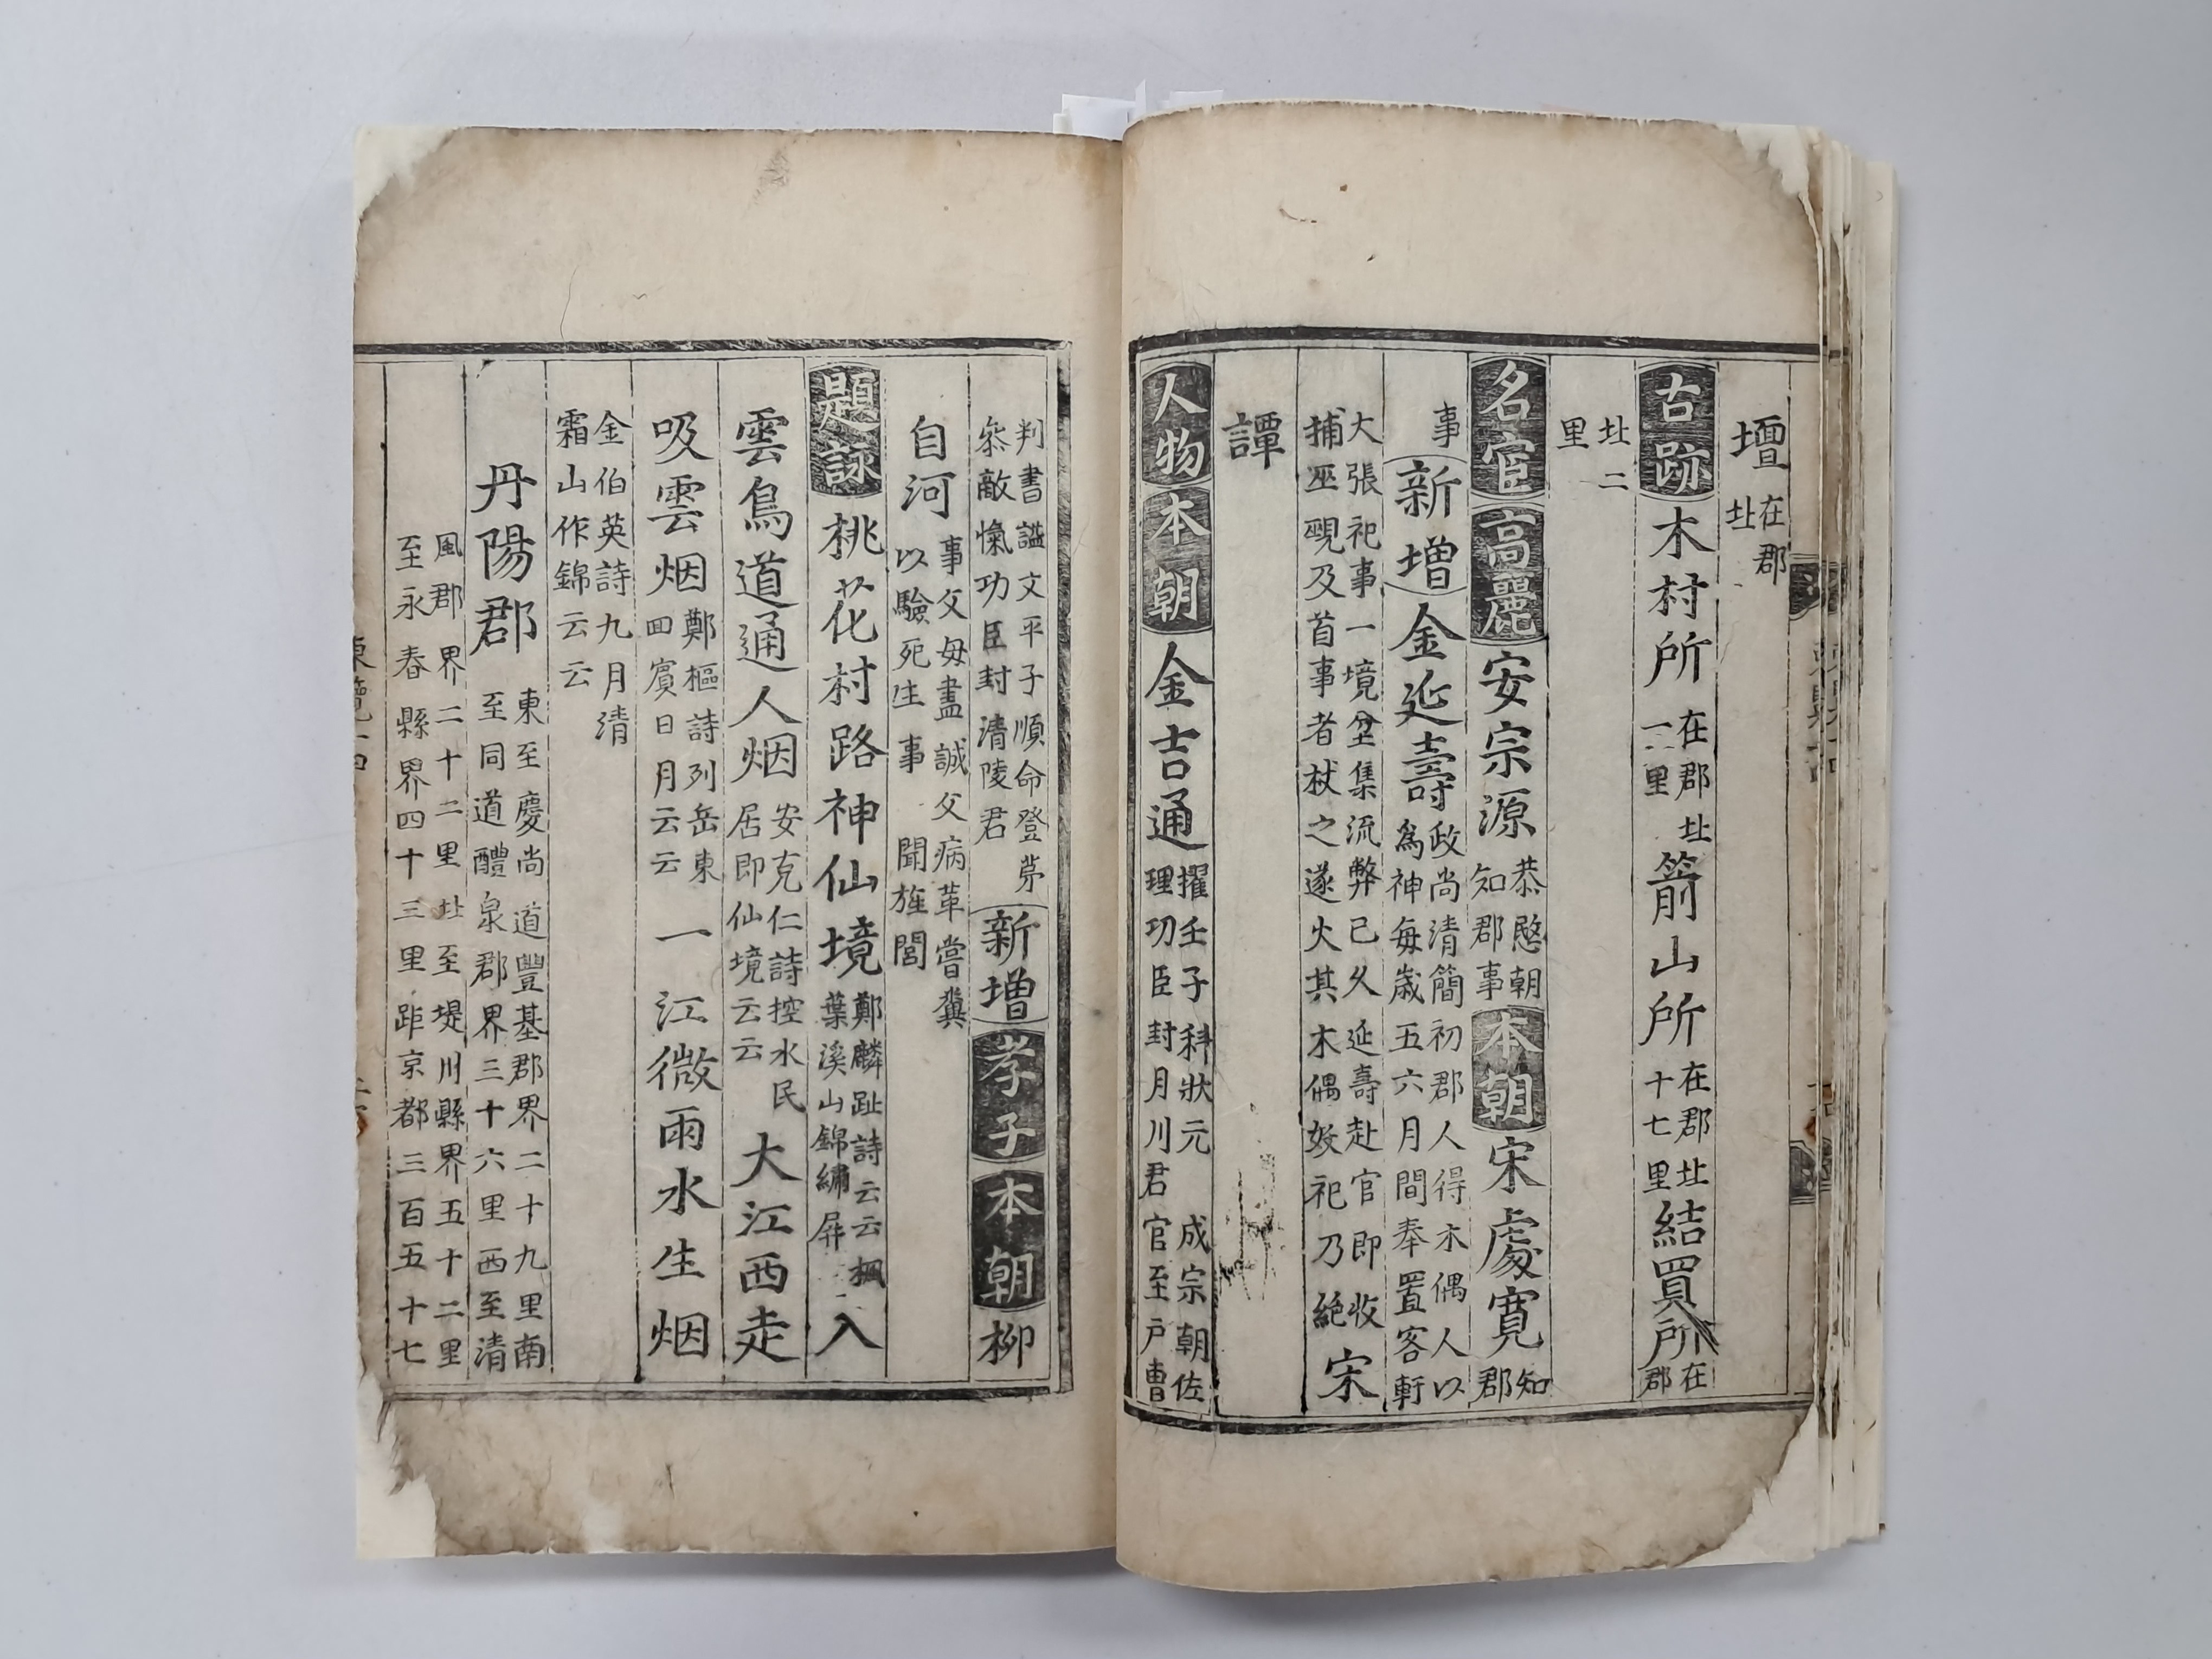 壇在郡
圵
古跡木村所在郡圵
二里箭山所在郡圵
十七里結買所在
郡
圵二
里
名宦高麗安宗源恭愍朝
知郡事本朝宋處寬知
郡
事新増金延壽政尚清簡初郡人得木偶人以
爲神毎歲五六月間奉置客軒
大張祀事一境坌集流弊已久延壽赴官即收
捕巫覡及首事者杖之遂火其木偶妖祀乃絕宋
譚
人物本朝金吉通擢壬子科狀元成宗朝佐
理功臣封月川君官至戶曹
判書諡文平子順命登苐
叅敵愾功臣封清陵君新増孝子本朝柳
自河事父毋盡誠父病革嘗糞
以驗死生事聞旌閭
題詠桃花村路神仙境鄭麟趾詩云云楓
葉溪山錦繡屛入
雲鳥道通人烟安克仁詩控水民
居即仙境云云大江西走
吸雲烟鄭樞詩列岳東
回賓日月云云一江微雨水生烟
金伯英詩九月清
霜山作錦云云
丹陽郡東至慶尚道豐基郡界二十九里南
至同道醴泉郡界三十六里西至清
風郡界二十二里圵至堤川縣界五十二里
至永春縣界四十三里距京都三百五十七